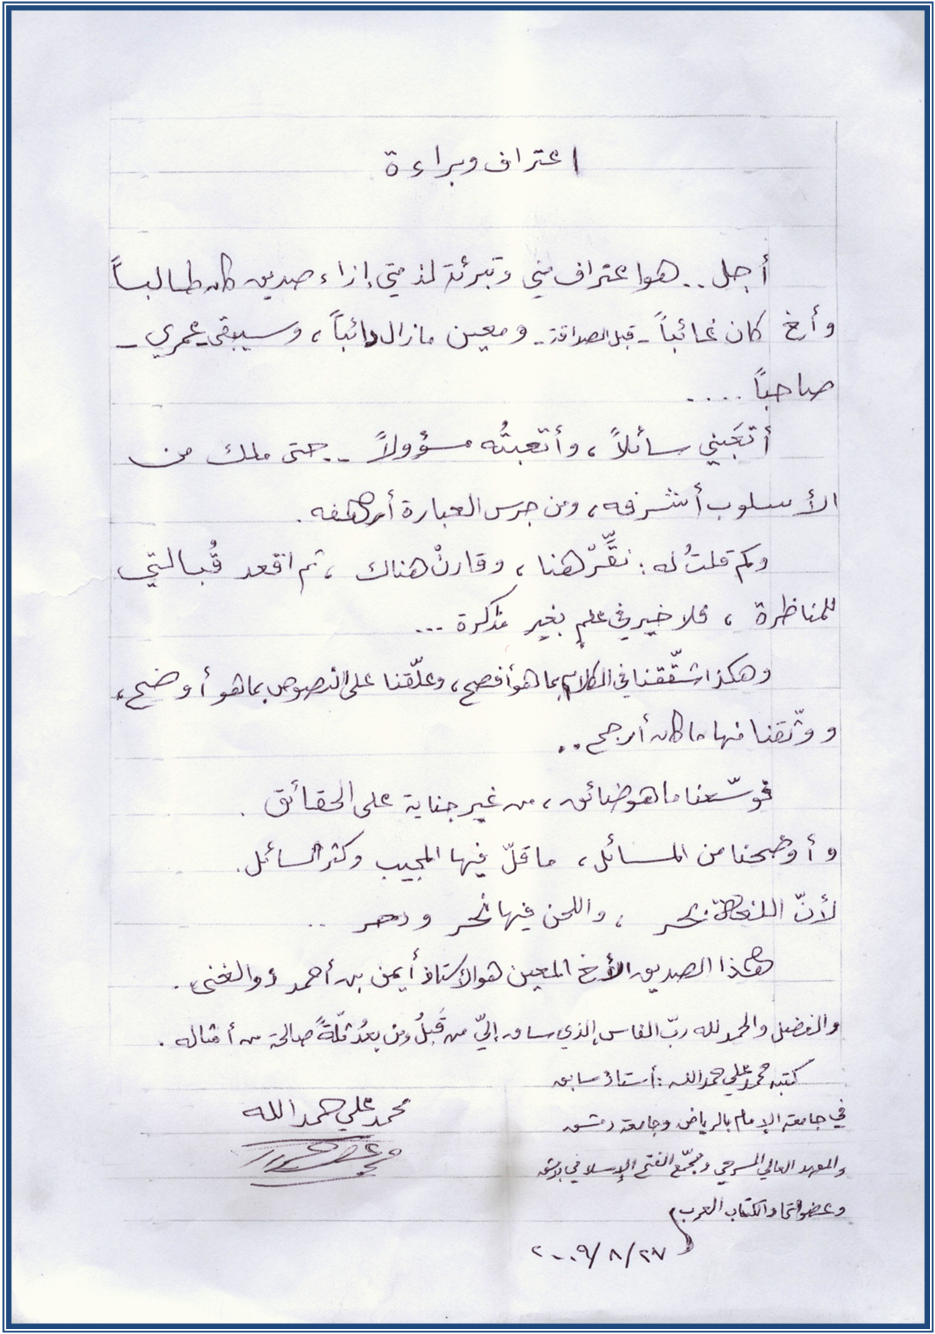 اعتراف وبراءة
أجل.. هو اعتراف مني وتبرئة لذمتي إزاء صديق كان طالباً
وأخ كان غائباً - قبل الصداقة - ومعين مازال دائباً، وسيبقى - عمري -
صاحباً ....
أتعَبني سائلاً، وأتعبتُه مسؤولاً .. حتى ملك من
الأسلوب أشرفه، ومن جرس العبارة أرهفه.
وكم قلتُ له: نقِّرْ هنا، وقارنْ هناك، ثم اقعد قُبالتي
للمناظرة، فلا خير في علم بغير مذاكرة ...
وهكذا شقّقنا في الكلام بما هو أفصح، وعلّقنا على النصوص بما هو أوضح،
ووثّقنا منها ما كان أرجح ..
فوسّعنا ما هو ضائق، من غير جناية على الحقائق.
وأوضحنا من المسائل، ما قلّ فيها المجيب وكثر السائل.
لأنّ اللغة بحر، واللحن فيها نُحر ودحر ..
هذا الصديق الأخ المعين هو الأستاذ أيمن بن أحمد ذو الغنى.
والفضل والحمد لله ربّ الناس الذي ساق إليّ من قَبلُ ومن بعدُ ثلّةً صالحة من أمثاله.
كتبه محمد علي حمد الله: أستاذ سابق
في جامعة الإمام بالرياض وجامعة دمشق
محمد علي حمد الله
والمعهد العالي المسرحي ومجمّع الفتح الإسلامي بدمشق
وعضو اتحاد الكتاب العرب
٢٠٠٩/٨/٢٧